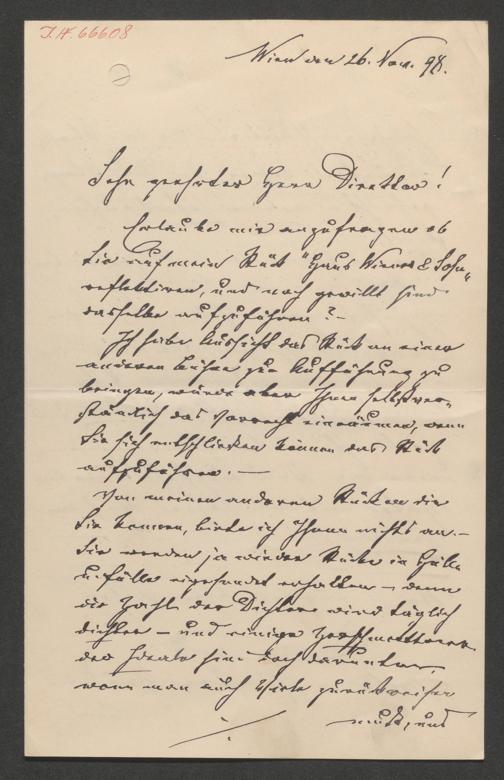 I.N. 66608
Wien den 26. Nov. 98.
Sehr geehrter Herr Direktor!
Erlaube mir anzufragen ob
Sie auf mein Stück "Haus Wiener & Sohn"
reflektiren, und noch gewillt sind
dasselbe aufzuführen? –
Ich habe Aussicht das Stück an einer
anderen Bühne zur Aufführung zu
bringen, würde aber Ihnen selbstver-
ständlich das Vorrecht einräumen, wenn
Sie sich entschließen können das Stück
aufzuführen. —
Von meinen anderen Stücken die
Sie kennen, biete ich Ihnen nichts an. –
Sie werden ja wieder Stücke in Hülle
u. Fülle eingesendet erhalten – denn
die Zahl der Dichter wird täglich
dichter – und einige
der Ideale sind doch darunter,
wenn man auch Viele zurückweisen
muß, und